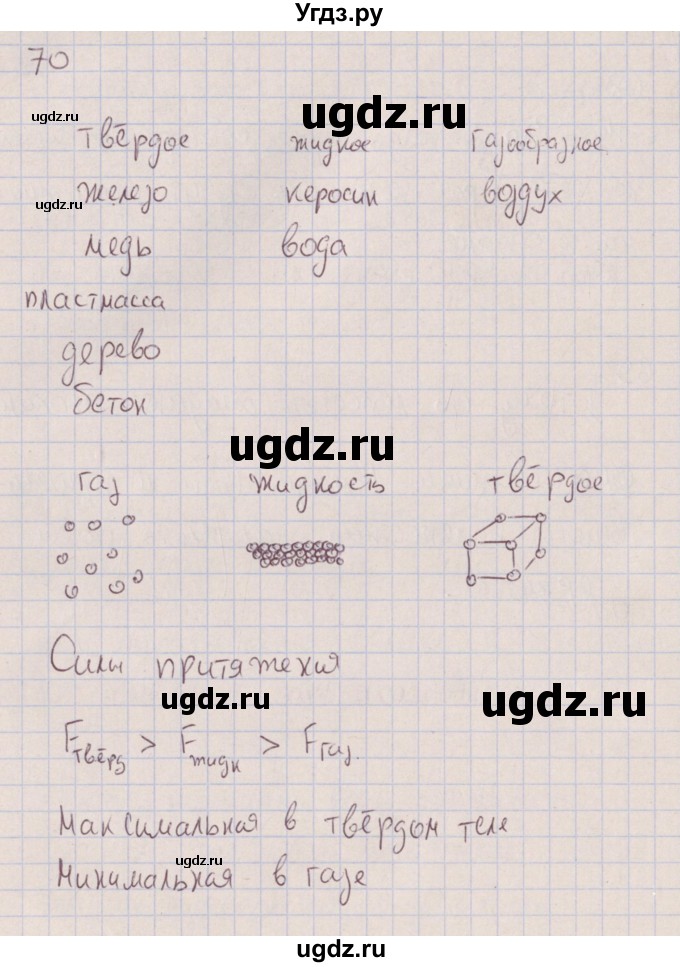 Угдз.ру
70
ugdz.ru
ugdz.ru
твёрдое жидкое газообразное
железо керосин воздух
ugdz.ru
медь вода
пластмасса
дерево
бетон
ugdz.ru
газ жидкость твёрдое
Силы притяжения
ugdz.ru
ugdz.ru
Fтвёрд > Fжидк > Fгаз.
Максимальная в твёрдом теле
ugdz.ru
Минимальная в газе
ugdz.ru